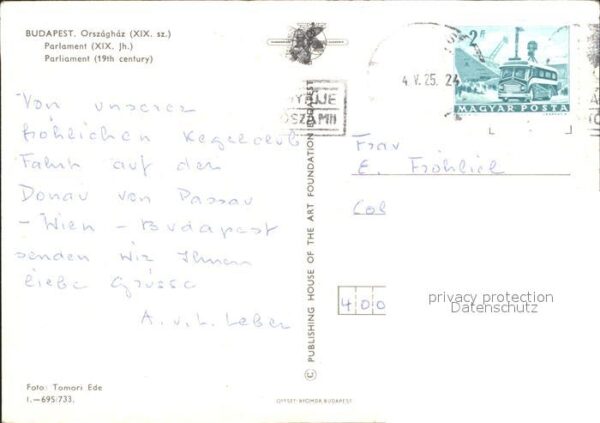 BUDAPEST. Országház (XIX. sz.)
Parlament (XIX. Jh.)
Parliament (19th century)
Von unserer
fröhlichen Kegelclub
Fahrt auf der
Donau von Passau
- Wien - Budapest
senden wir Ihnen
liebe Grüsse
A. u. L. Leber
Foto: Tomori Ede
I.—695/733.
© PUBLISHING HOUSE OF THE ART FOUNDATION BUDAPEST
OFFSET-NYOMDA BUDAPEST
2 Ft
MAGYAR POSTA
4. V. 25. 24
Frau
E. Fröhlich
400
privacy protection
Datenschutz